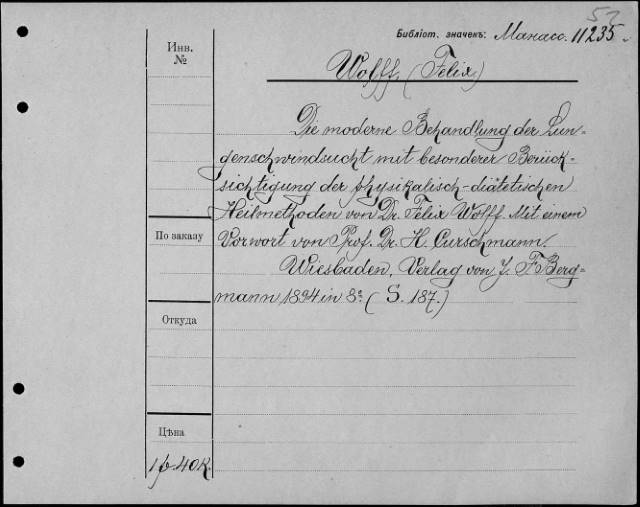 52
Библіот. значекъ: Манасс. 11235.
Инв.
№
Wolff. (Felix)
Die moderne Behandlung der Lun-
genschwindsucht mit besonderer Berück-
sichtigung der physikalisch-diätetischen
Heilmethoden von Dr. Felix Wolff. Mit einem
Vorwort von Prof. Dr. H. Curschmann.
Wiesbaden, Verlag von J. F. Berg-
mann 1894 in 8º (S. 187.)
По заказу
Откуда
Цѣна
1 р 40 к.